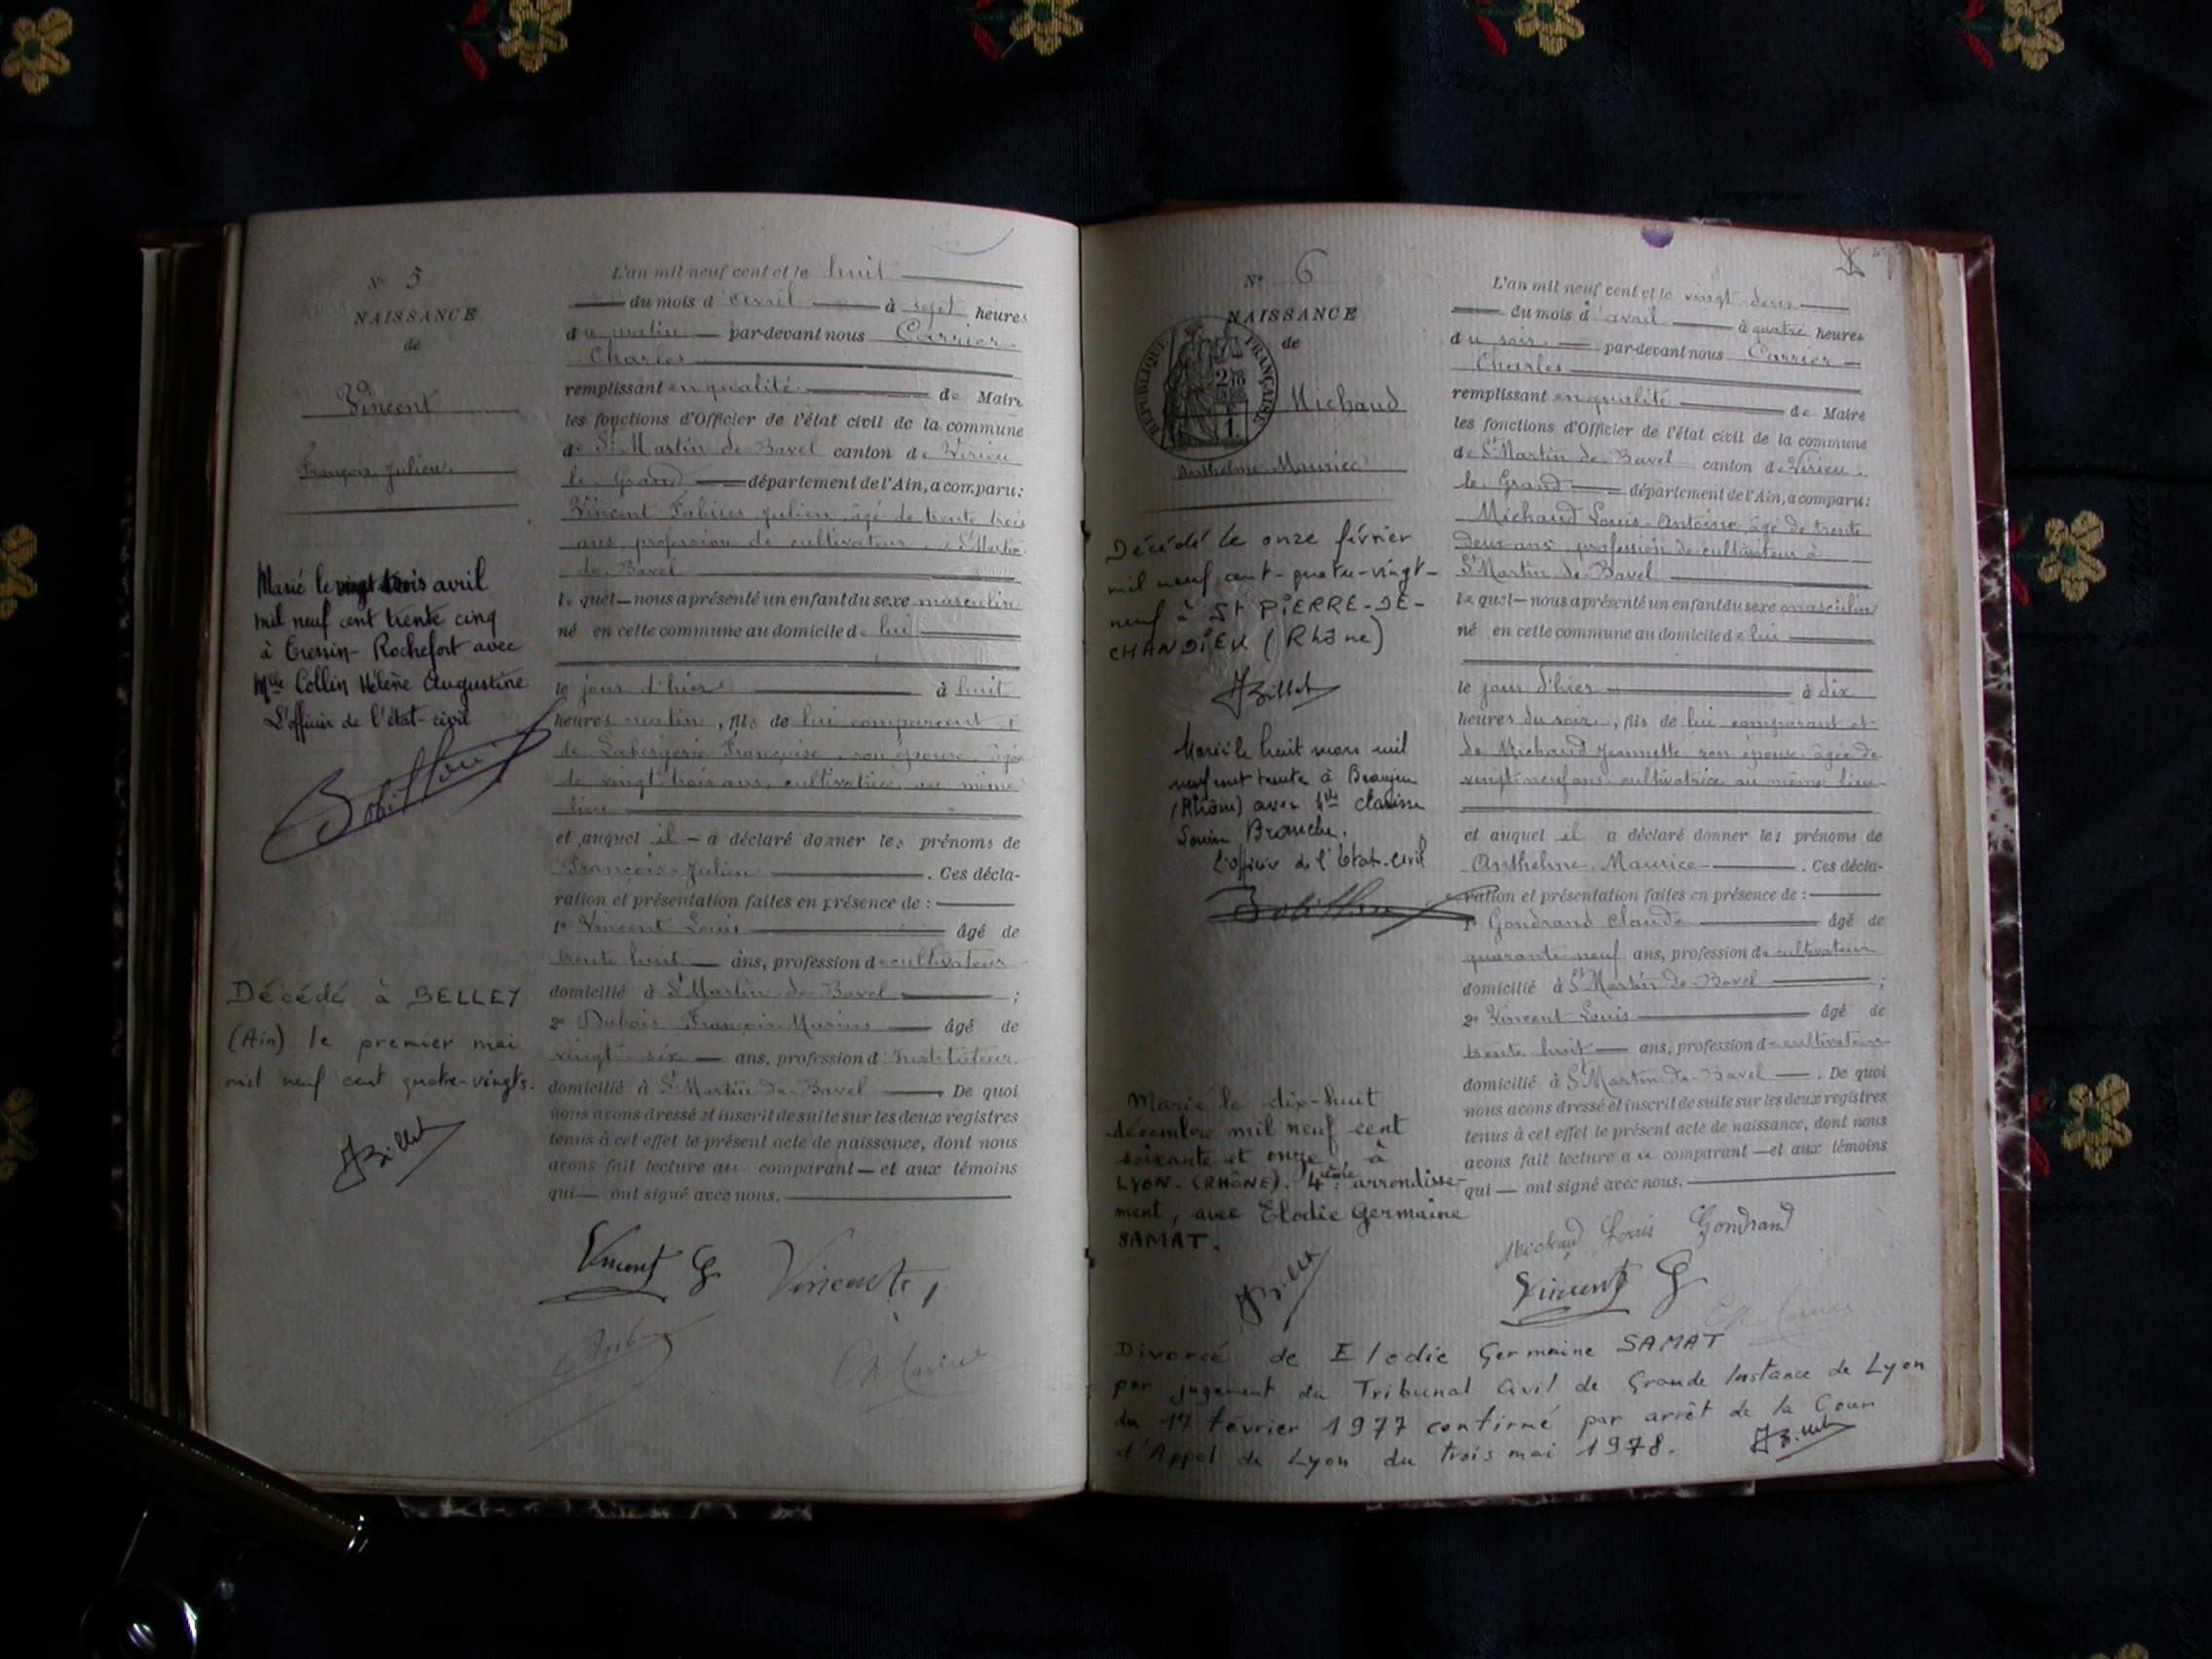 N° 5
NAISSANCE
de
Vincent
François Julien
Marié le vingt trois avril
mil neuf cent trente cinq
à Cressin-Rochefort avec
Mlle Collin Hélène Augustine
L'officier de l'état-civil
Décédé à BELLEY
(Ain) le premier mai
mil neuf cent quatre-vingts.
JBillet
L'an mil neuf cent et le huit
du mois d'avril à sept heures
du matin par-devant nous Carrier
Charles
remplissant en qualité de Maire
les fonctions d'Officier de l'état civil de la commune
de St Martin de Bavel canton de Virieu
le Grand département de l'Ain, a comparu:
Vincent Julien âgé de trente trois
ans, profession de cultivateur à St Martin
de Bavel
lequel nous a présenté un enfant du sexe masculin
né en cette commune au domicile de lui
le jour d'hier à huit
heures matin, fils de lui comparant et
de Françoise, son épouse, âgée
de vingt trois ans, cultivatrice au même
lieu
et auquel il a déclaré donner les prénoms de
François Julien. Ces décla-
ration et présentation faites en présence de :
1° Vincent Louis âgé de
trente huit ans, profession de cultivateur
domicilié à St Martin de Bavel ;
2° Dubois François Marius âgé de
vingt six ans, profession d'instituteur
domicilié à St Martin de Bavel De quoi
nous avons dressé et inscrit de suite sur les deux registres
tenus à cet effet le présent acte de naissance, dont nous
avons fait lecture au comparant et aux témoins
qui ont signé avec nous.
Vincent
Vincent
Ch Carrier
N° 6
NAISSANCE
de
RÉPUBLIQUE FRANÇAISE
Michaud
Anthelme Maurice
Décédé le onze février
mil neuf cent-quatre-vingt-
neuf à St PIERRE-DE-
CHANDIEU (Rhône)
JBillet
Marié le huit mars mil
neuf cent trente à Beaujeu
(Rhône) avec Mlle Clarisse
Louise Branche.
L'officier de l'Etat-civil
Marié le dix-huit
décembre mil neuf cent
soixante et onze à
LYON. (RHÔNE). 4ème arrondisse-
ment, avec Elodie Germaine
SAMAT.
JBillet
L'an mil neuf cent et le vingt deux
du mois d'avril à quatre heures
du soir par-devant nous Carrier
Charles
remplissant en qualité de Maire
les fonctions d'Officier de l'état civil de la commune
de St Martin de Bavel canton de Virieu
le Grand département de l'Ain, a comparu:
Michaud Louis Antoine âgé de trente
deux ans, profession de cultivateur à
St Martin de Bavel
lequel nous a présenté un enfant du sexe masculin
né en cette commune au domicile de lui
le jour d'hier à dix
heures du soir, fils de lui comparant et
de Michaud Jeannette son épouse âgée de
vingt neuf ans cultivatrice au même lieu
et auquel il a déclaré donner les prénoms de
Anthelme Maurice. Ces décla-
ration et présentation faites en présence de :
1° Gondrand Claude âgé de
quarante neuf ans, profession de cultivateur
domicilié à St Martin de Bavel ;
2° Vincent Louis âgé de
trente huit ans, profession de cultivateur
domicilié à St Martin de Bavel . De quoi
nous avons dressé et inscrit de suite sur les deux registres
tenus à cet effet le présent acte de naissance, dont nous
avons fait lecture au comparant et aux témoins
qui ont signé avec nous.
Michaud Louis Gondrand
Vincent
Divorcé de Elodie Germaine SAMAT
par jugement du Tribunal Civil de Grande Instance de Lyon
du 17 février 1977 confirmé par arrêt de la Cour
d'Appel de Lyon du trois mai 1978.
JBillet